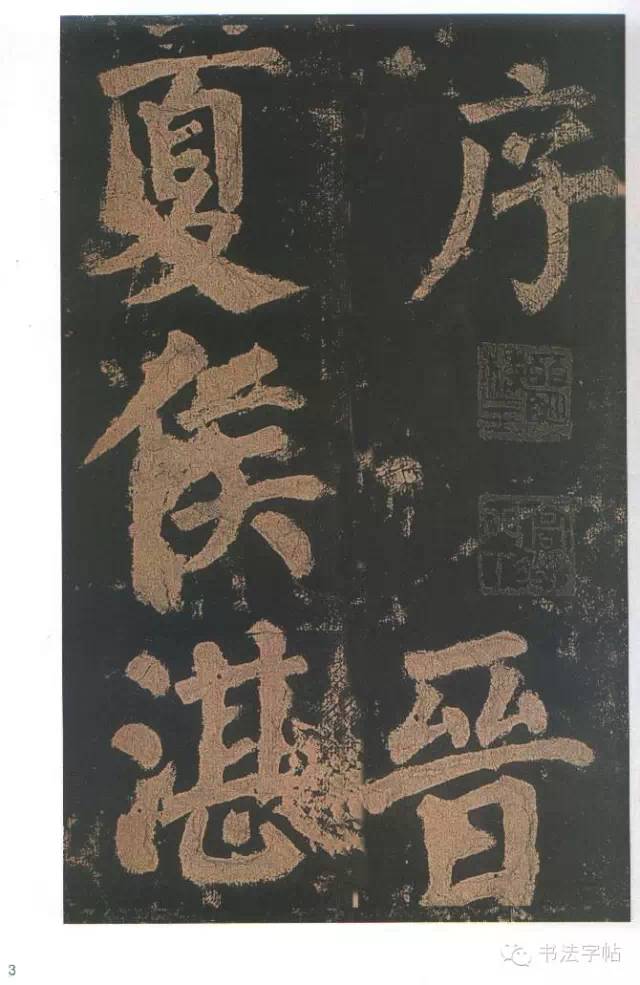 序
晉
夏侯湛
3
书法字帖